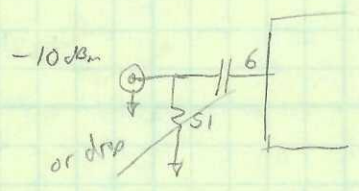 -10 dBm
6
51
or drop